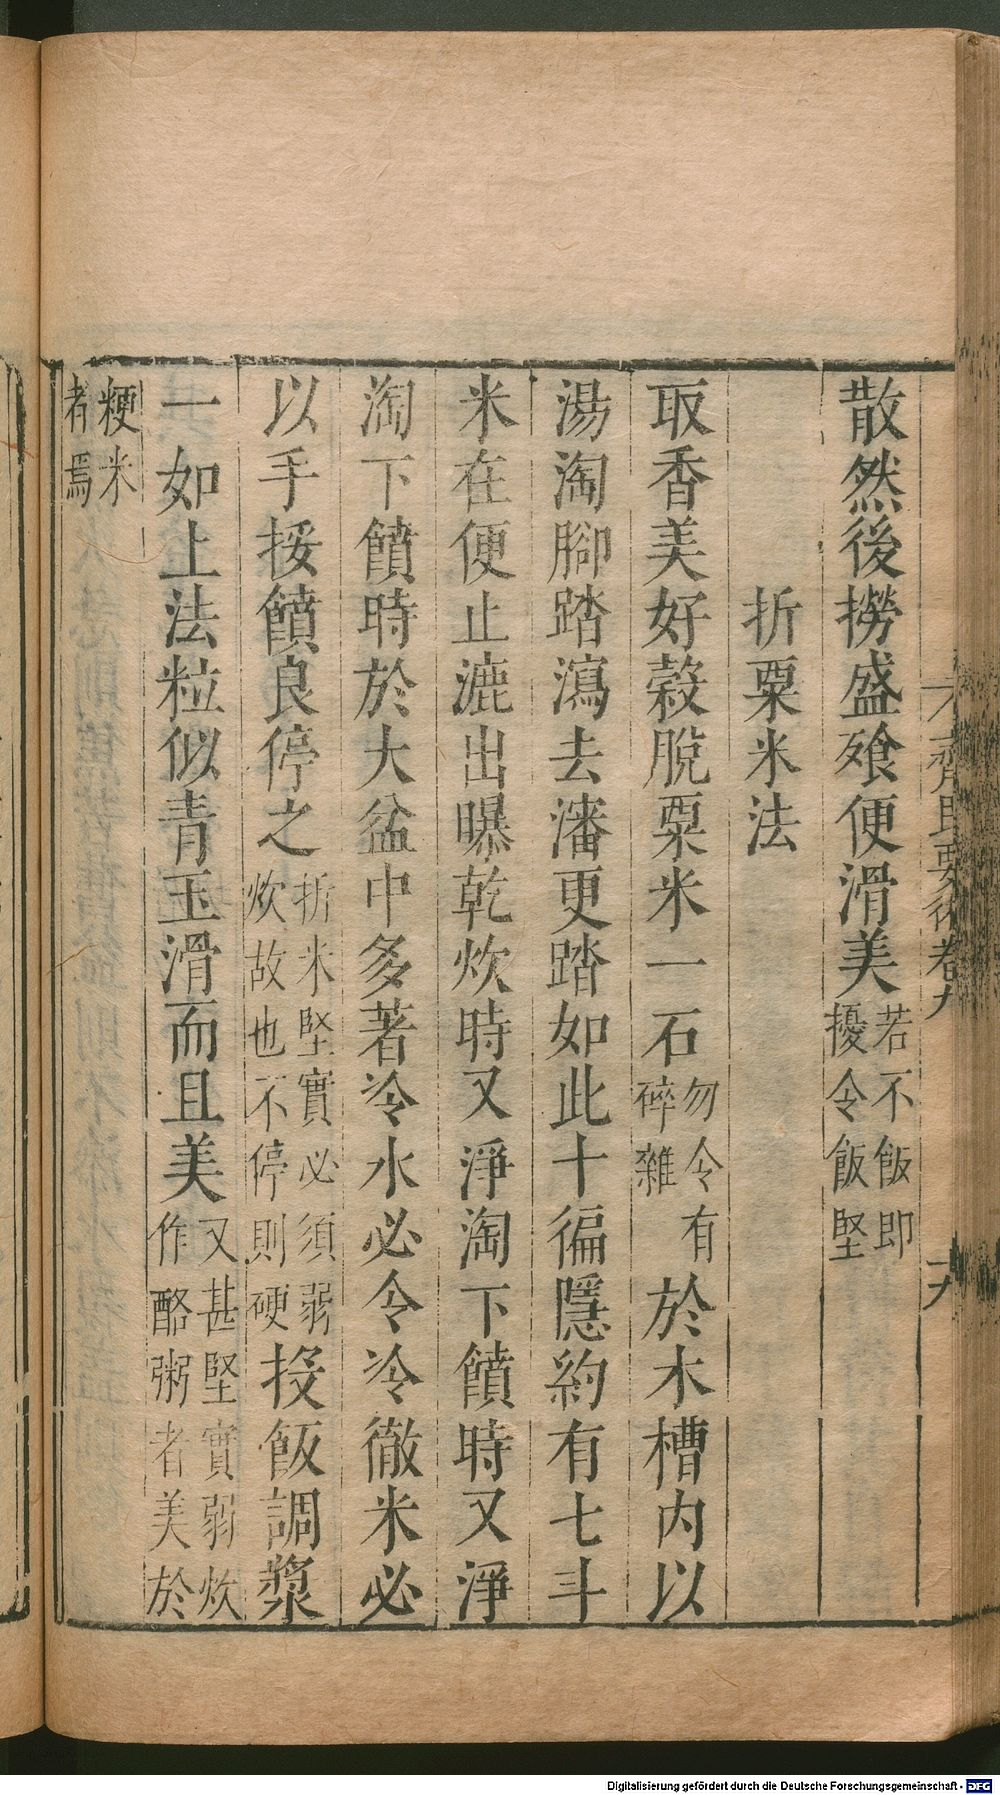 散然後撈盛飧便滑美若不飯即擾令飯堅
折粟米法
取香美好穀脫粟米一石勿令有碎雜於木槽內以
湯淘腳踏瀉去瀋更踏如此十徧隱約有七斗
米在便止漉出曝乾炊時又淨淘下饙時又淨
淘下饙時於大盆中多著冷水必令冷徹米必
以手挼饙良停之折米堅實必須弱炊故也不停則硬投飯調漿
一如上法粒似青玉滑而且美又甚堅實弱炊作酪粥者美於
粳米者焉
要術卷九
Digitalisierung gefördert durch die Deutsche Forschungsgemeinschaft - DFG